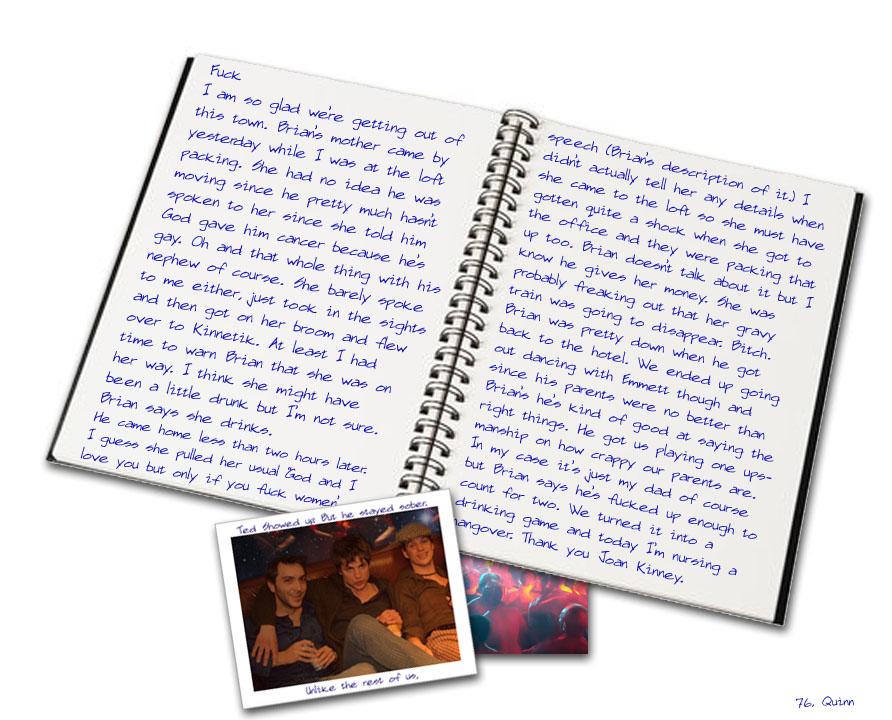 Fuck
I am so glad we're getting out of
this town. Brian's mother came by
yesterday while I was at the loft
packing. She had no idea he was
moving since he pretty much hasn't
spoken to her since she told him
God gave him cancer because he's
gay. Oh and that whole thing with his
nephew of course. She barely spoke
to me either, just took in the sights
and then got on her broom and flew
over to Kinnetik. At least I had
time to warn Brian that she was on
her way. I think she might have
been a little drunk but I'm not sure.
Brian says she drinks.
He came home less than two hours later.
I guess she pulled her usual 'God and I
love you but only if you fuck women'
speech (Brian's description of it.) I
didn't actually tell her any details when
she came to the loft so she must have
gotten quite a shock when she got to
the office and they were packing that
up too. Brian doesn't talk about it but I
know he gives her money. She was
probably freaking out that her gravy
train was going to disappear. Bitch.
Brian was pretty down when he got
back to the hotel. We ended up going
out dancing with Emmett though and
since his parents were no better than
Brian's he's kind of good at saying the
right things. He got us playing one ups-
manship on how crappy our parents are.
In my case it's just my dad of course
but Brian says he's fucked up enough to
count for two. We turned it into a
drinking game and today I'm nursing a
hangover. Thank you Joan Kinney.
Ted Showed up. But he stayed sober.
Unlike the rest of us.
76, Quinn